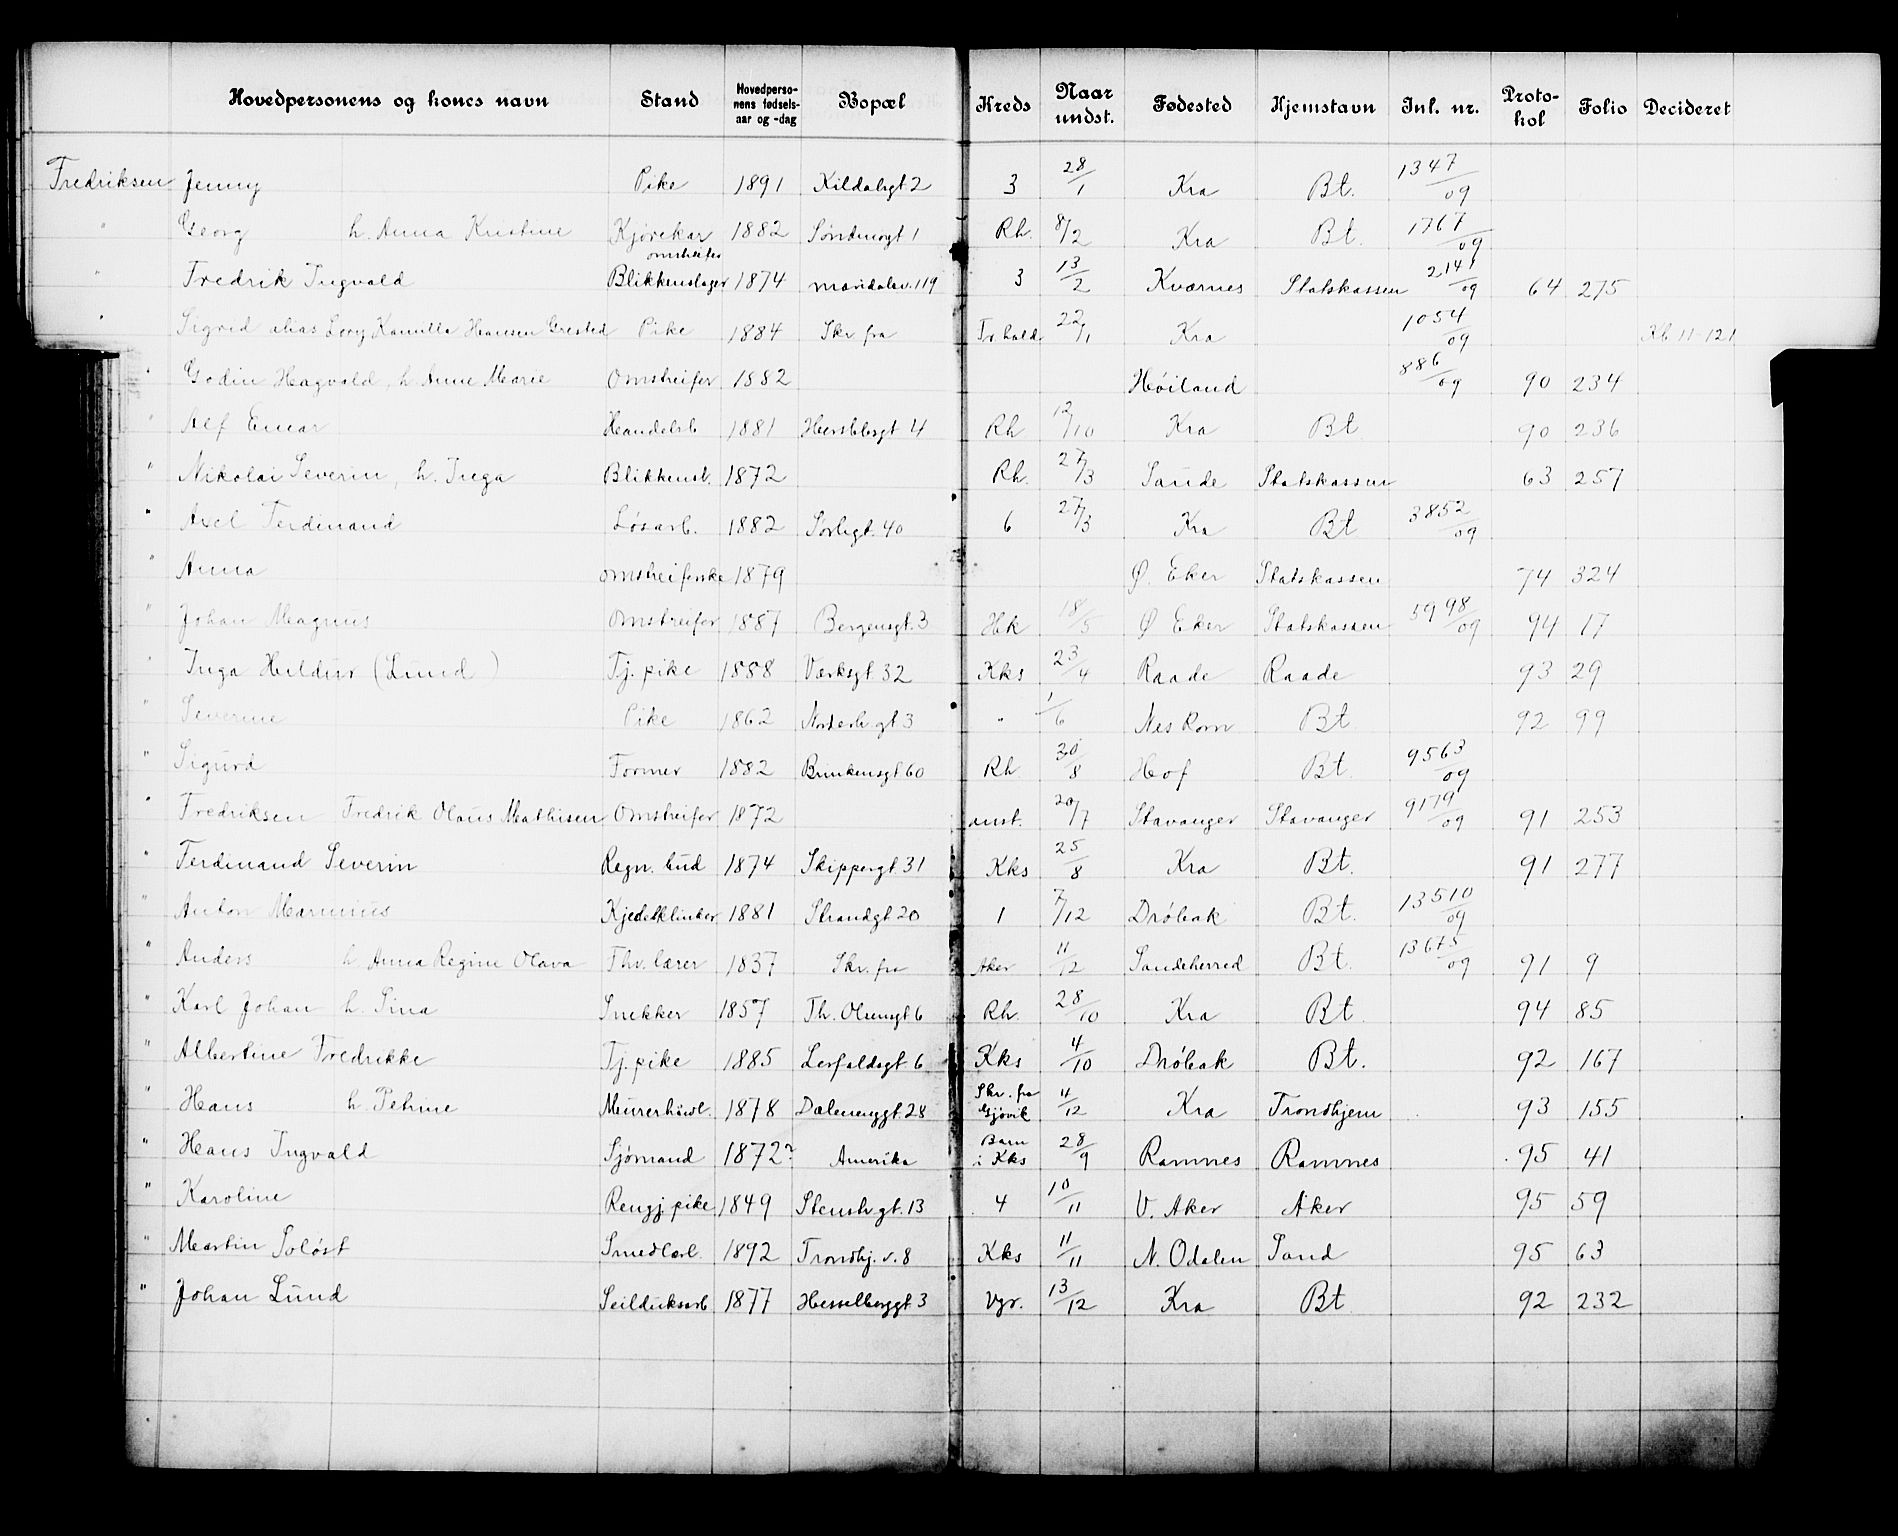 Hovedpersonens og kones navn Stand Hovedpersonens fødselsaar og -dag Bopæl Kreds Naar undst. Fødested Hjemstavn Inl. nr. Protokol Folio Decideret
Fredriksen Jenny Pike 1891 Kildalsgt 2 3 28/1 Kra Bt. 1347/09
" Georg h. Anna Kristine Kjørekar omstreifer 1882 Søndmørgt 1 Rh. 8/2 Kra Bt. 1767/09
" Fredrik Ingvald Blikkenslager 1874 maridalsv. 119 3 13/2 Kvernes Statskassen 2141/09 64 275
" Sigrid alias Lovy Kamilla Hansen Grested Pike 1884 Skr fra Fr.hald. 22/1 Kra 1054/09 Kb 11-121
" Godin Hagvald, h. Anne Marie Omstreifer 1882 Høiland 886/09 90 234
" Alf Einar Handelsb. 1881 Herslebsgt 4 Rh 12/10 Kra Bt 90 236
" Nikolai Severin, h. Inga Blikkensl. 1872 Rh. 27/3 Sande Statskassen 63 257
" Axel Ferdinand Løsarb. 1882 Sorligt. 40 6 27/3 Kra Bt 3852/09
" Anna omstreiferske 1879 Ø. Eker Statskassen 74 324
" Johan Magnus Omstreifer 1887 Bergensgt. 3 Hk 18/5 Ø Eker Statskassen 5998/09 94 17
" Inga Hildur (Lund) Tj. pike 1888 Værksgt 32 Kks 23/4 Raade Raade 93 29
" Severine Pike 1862 Norderh.gt 3 " 1/6 Nes Rom Bt 92 99
" Sigurd Former 1882 Brinkensgt 60 Rh. 30/8 Hof Bt. 9563/09
" Fredriksen Fredrik Olaus Mathisen Omstreifer 1872 anst. 20/7 Stavanger Stavanger 9179/09 91 253
" Ferdinand Severin Regn. bud 1874 Skippergt. 31 Kks 25/8 Kra Bt. 91 277
" Anton Marinius Kjedeklinker 1881 Strandgt 20 1 7/12 Drøbak Bt. 13510/09
" Anders h. Anna Regine Olava Fhv. lærer 1837 Skr. fra Aker 11/12 Sandeherred Bt. 13675/09 91 9
" Karl Johan h. Sina Snekker 1857 Th. Olsensgt 6 Rh. 28/10 Kra Bt. 94 85
" Albertine Fredrikke Tj. pike 1885 Lerfaldsgt 6 Kks 4/10 Drøbak Bt. 92 167
" Hans h. Petrine Murerhånl. 1878 Dælenenggt. 28 Skr. fra Gjøvik 11/12 Kra Trondhjem 93 155
" Hans Ingvald Sjømand 1872? Amerika Barn i Kks 28/9 Ramnes Ramnes 95 41
" Karoline Rengj. pike 1849 Stensb.gt. 13 4 10/11 V. Aker Aker 95 59
" Martin Soløst Smedlærl. 1892 Trondhj. v. 8 Kks 11/11 N. Odalen Sand 95 63
" Johan Lund Seilduksarb 1877 Hesselberggt 3 Vgr. 13/12 Kra Bt. 92 232